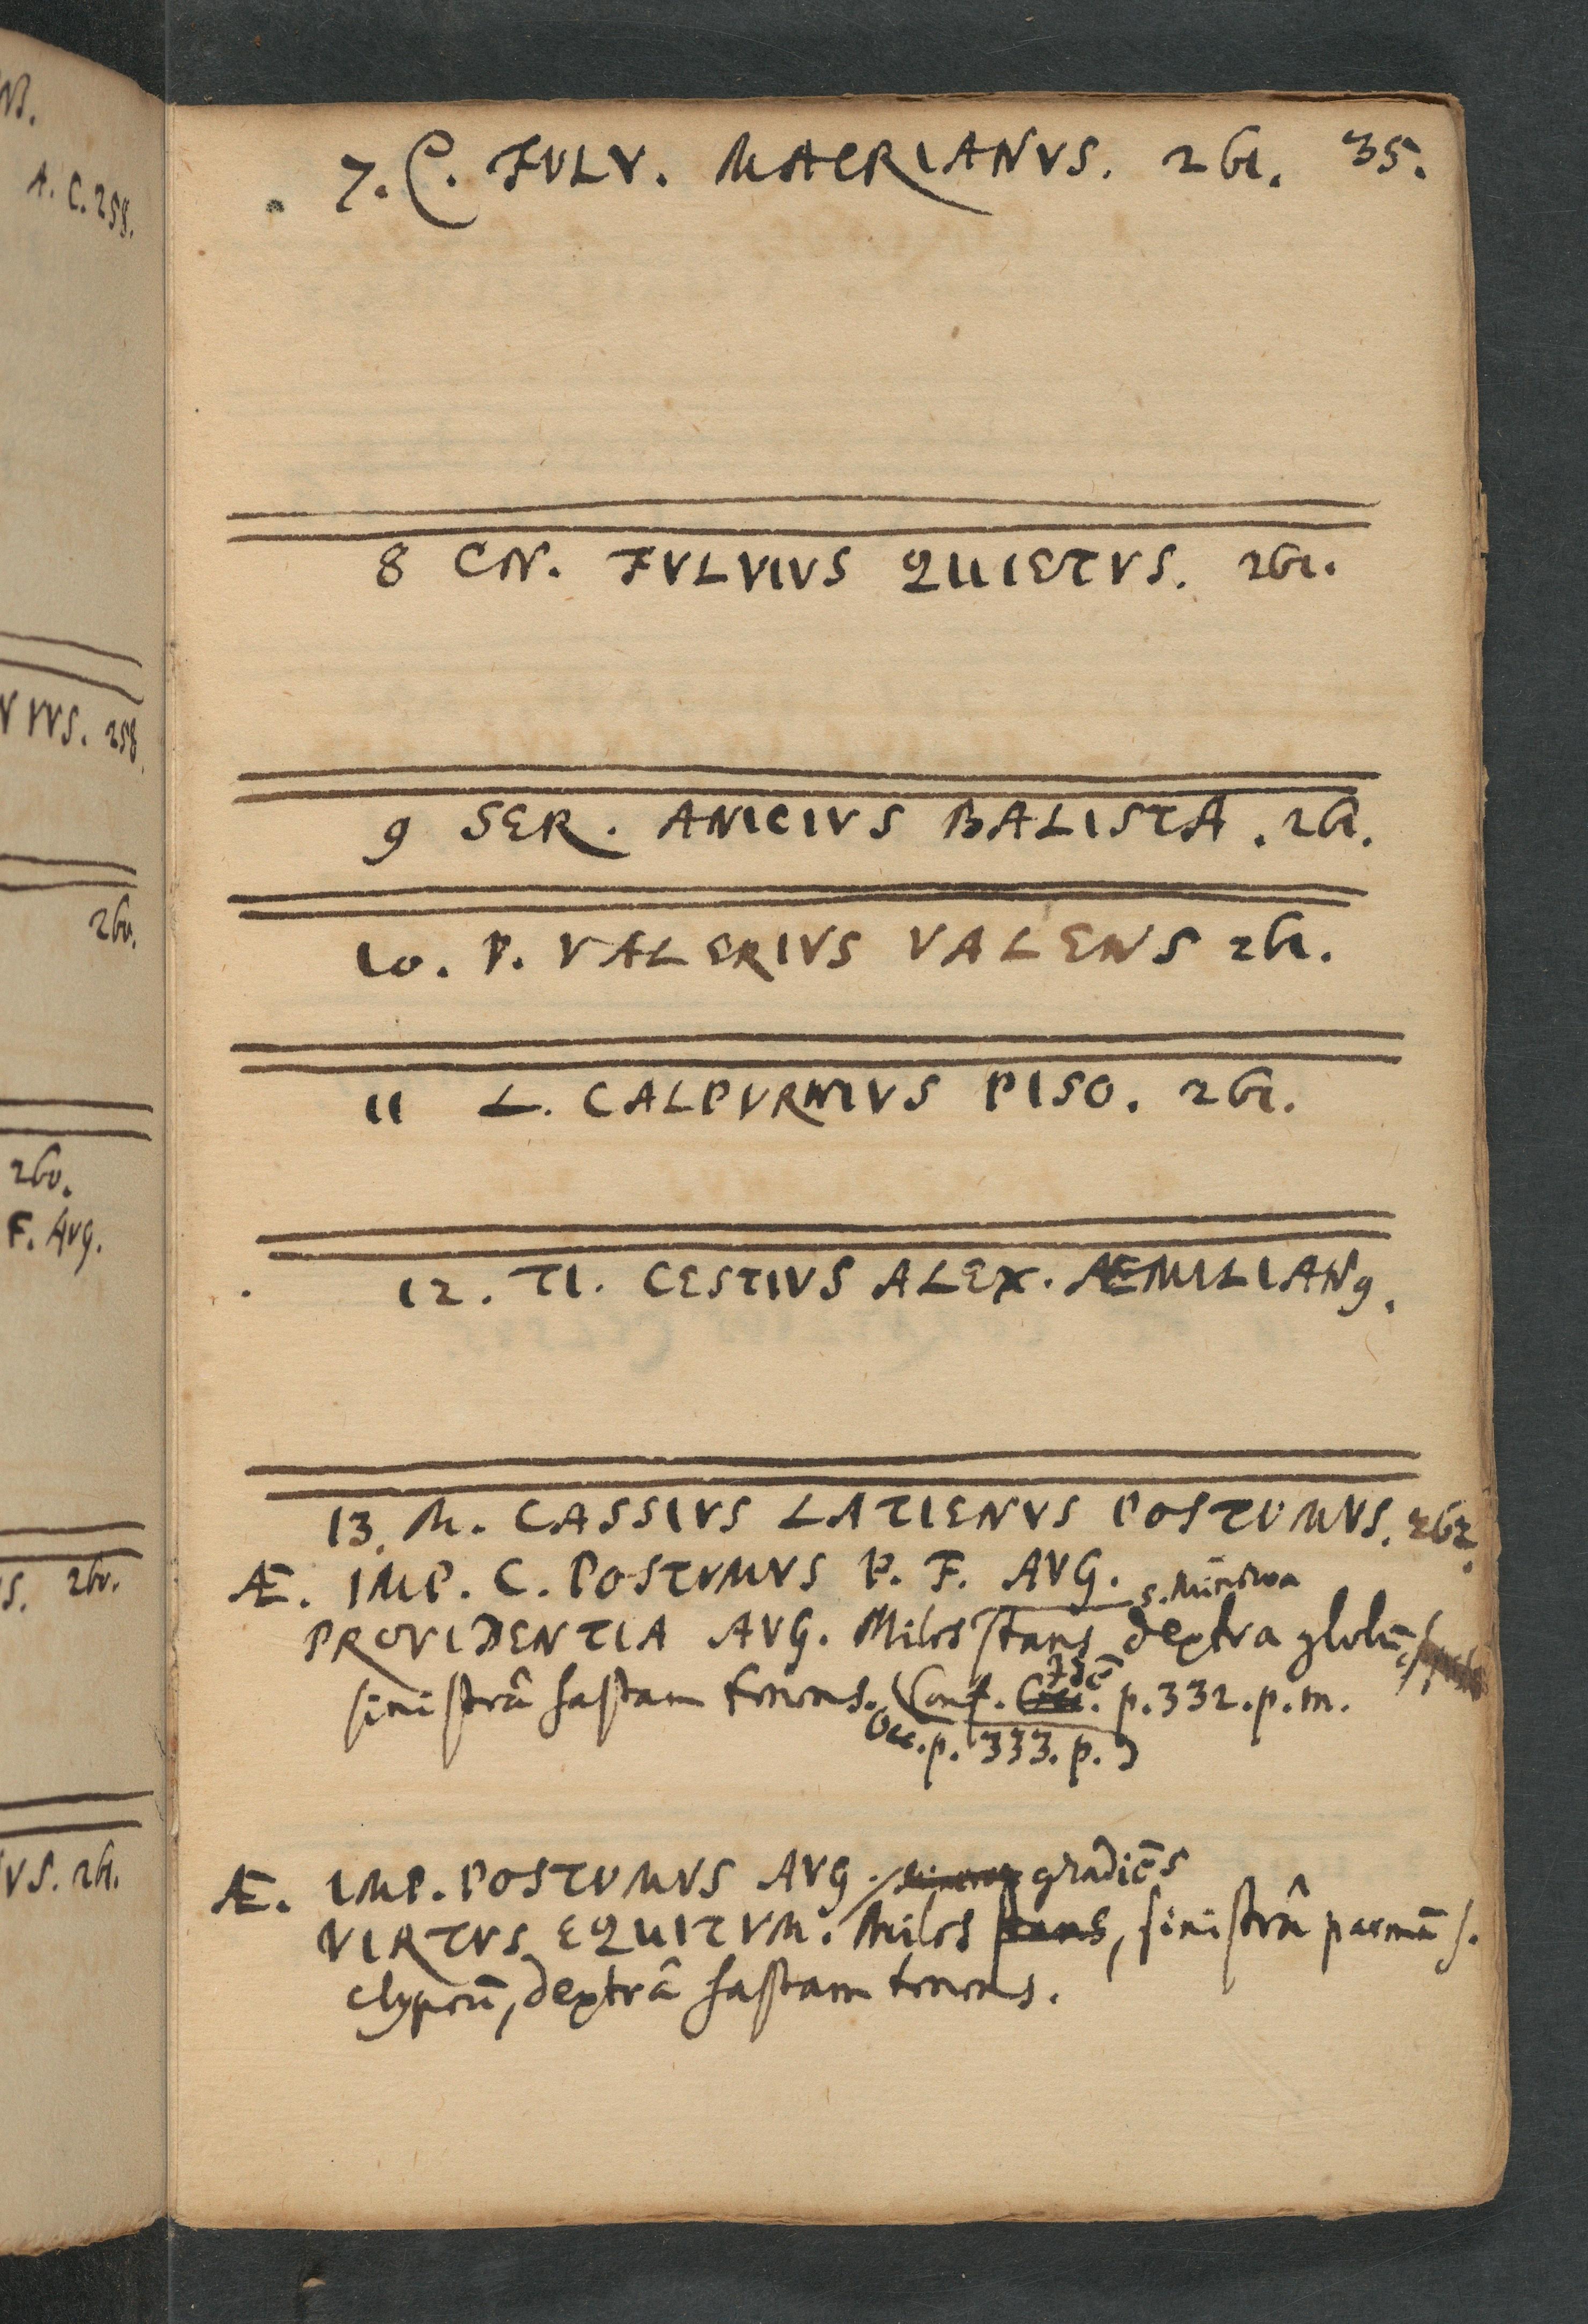 N.
A. C. 258.
NVS. 258
260.
260.
F. AVG.
S. 260.
VS. 261.
7. C. FVLV. MACRIANVS. 261. 35.
8 CN. FVLVIVS QUIETVS. 261.
9 SER. ANICIVS BALISTA. 261.
10. P. VALERIVS VALENS 261.
11 L. CALPVRNIVS PISO. 261.
12. TI. CESTIVS ALEX. ÆMILIANꝰ.
13. M. CASSIVS LATIENVS POSTVMVS. 262.
Æ. IMP. C. POSTVMVS P. F. AVG.
s. Minerva
PROVIDENTIA AVG. Miles stans dextra globū,
sinistrâ hastam tenens. Conf. Occ. p. 332. p. m.
Idē
Occ. p. 333. p.
Æ. IMP. POSTVMVS AVG. gradiēs
VIRTVS EQUITVM. Miles stans, sinistrâ parmā s.
clypeū, dextrâ hastam tenens.